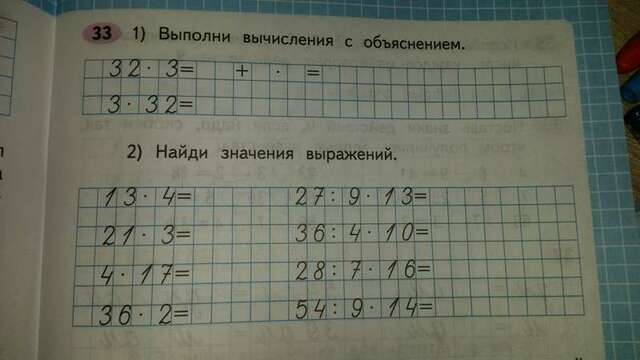 33 1) Выполни вычисления с объяснением.
32 · 3= + · =
3 · 32=
2) Найди значения выражений.
13 · 4= 27 : 9 · 13=
21 · 3= 36 : 4 · 10=
4 · 17= 28 : 7 · 16=
36 · 2= 54 : 9 · 14=